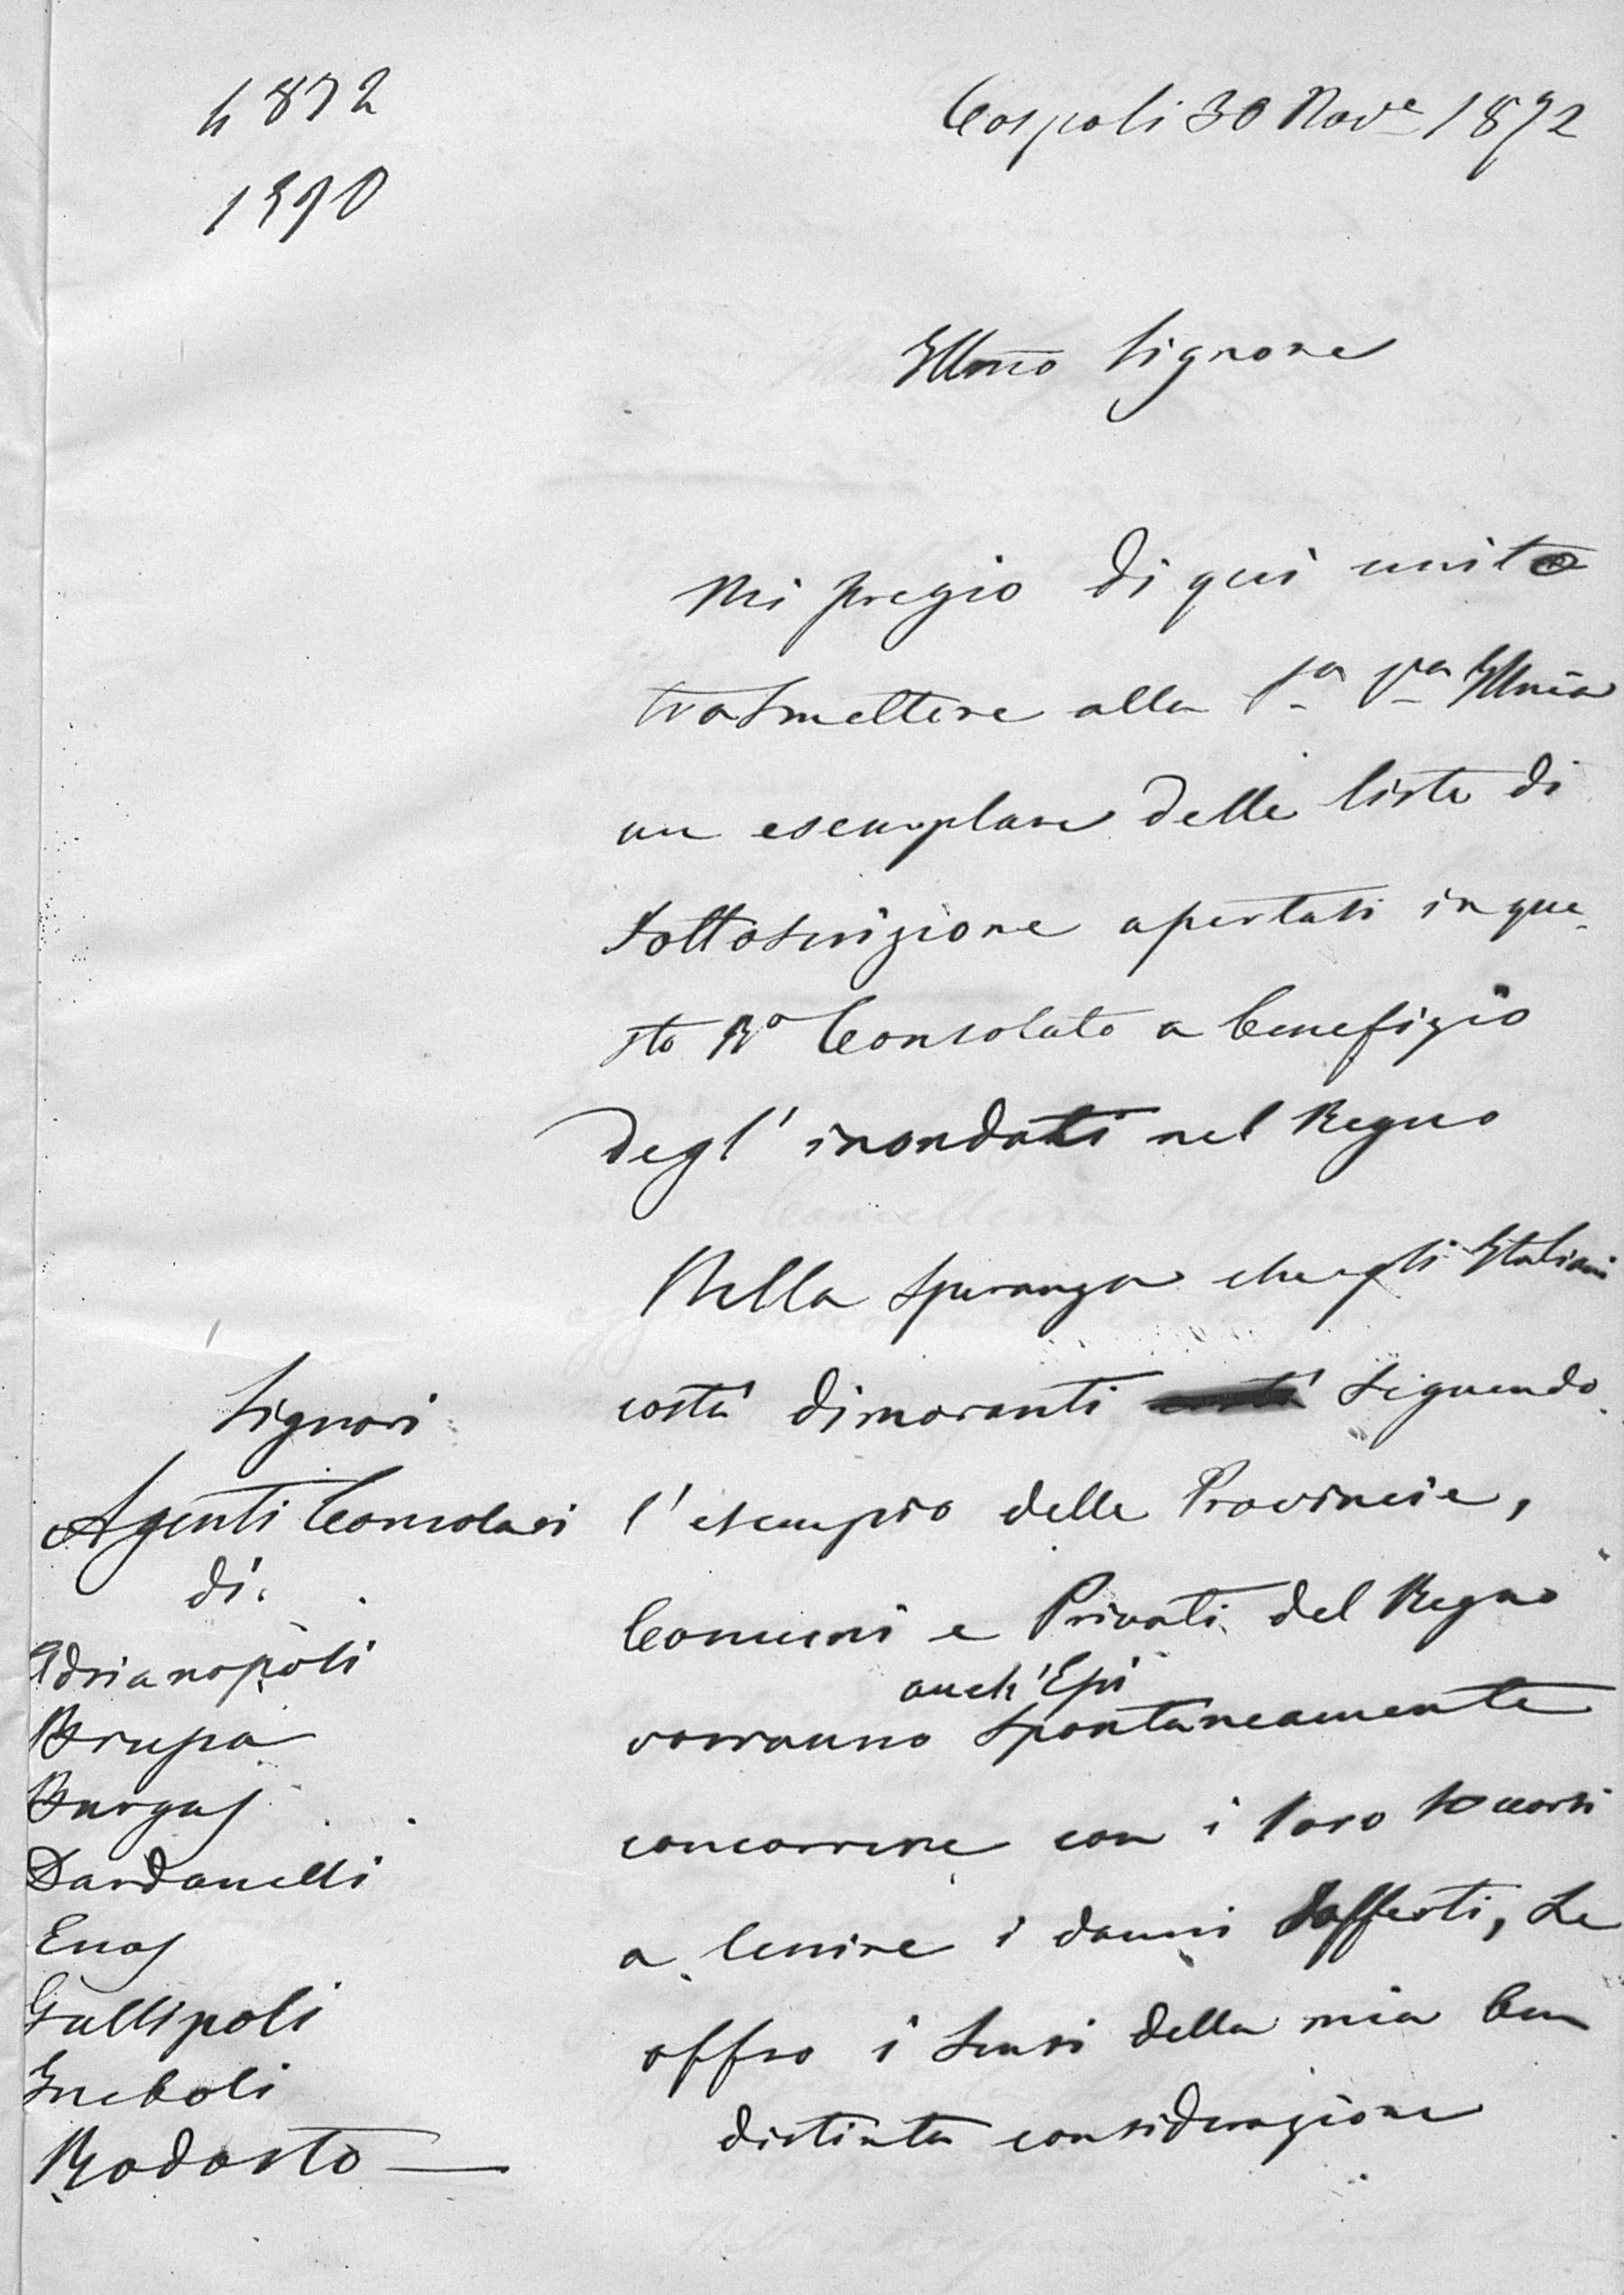 4872
1390
Cospoli 30 Nove 1872
Illmo Signore
Mi pregio di qui unito
trasmettere alla Sa Va Illma
un esemplare delle liste di
sottoscrizione apertasi in que-
sto Ro Consolato a benefizio
degl' inondati nel Regno
Nella speranza che gli Italiani
costà dimoranti seguendo
l'esempio delle Provincie,
Comuni e Privati del Regno
anch'Essi
vorranno spontaneamente
concorrere con i loro soccorsi
a lenire i danni sofferti, Le
offro i sensi della mia ben
distinta considerazione
Signori
Agenti Consolari
di
Adrianopoli
Brussa
Burgas
Dardanelli
Enos
Gallipoli
Ineboli
Rodosto